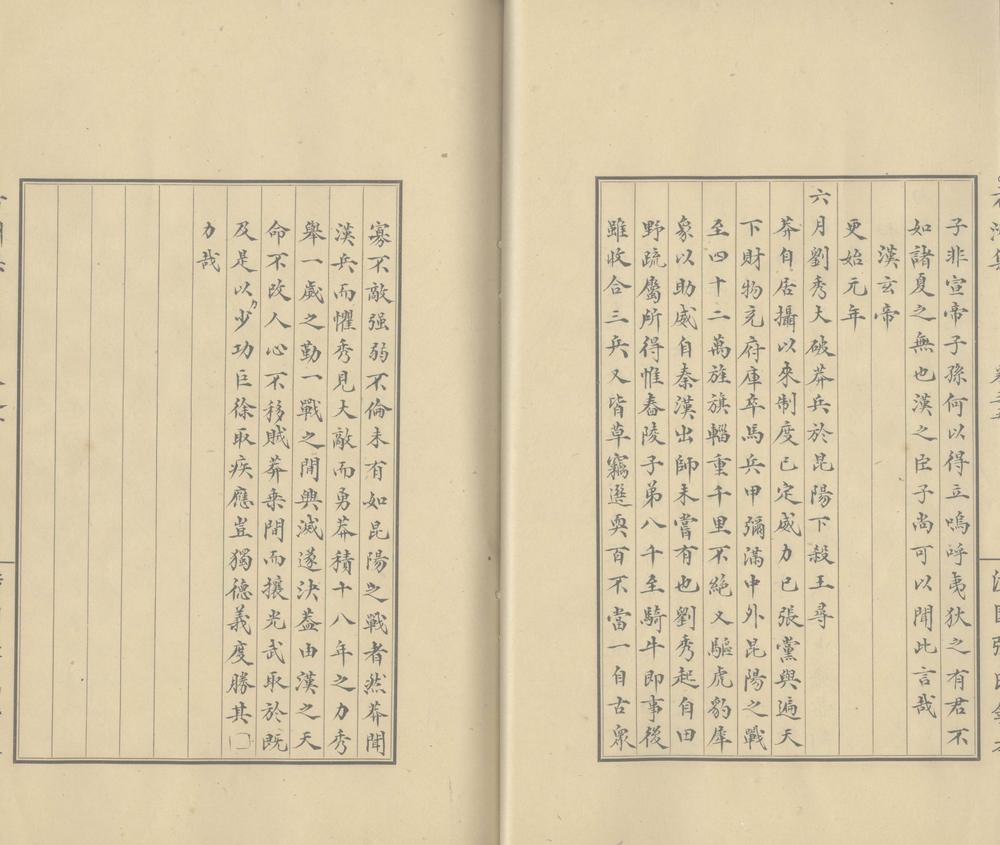 子非宣帝子孫何以得立嗚呼夷狄之有君不
如諸夏之無也漢之臣子尚可以聞此言哉
漢玄帝
更始元年
六月劉秀大破莽兵於昆陽下殺王尋
莽自居攝以來制度已定威力已張黨與遍天
下財物充府庫卒馬兵甲彌滿中外昆陽之戰
至四十二萬旌旗輜重千里不絕又驅虎豹犀
象以助威自秦漢出師未嘗有也劉秀起自田
野疏屬所得惟舂陵子弟八千至騎牛即事後
雖收合三兵又皆草竊選耎百不當一自古衆
寡不敵强弱不倫未有如昆陽之戰者然莽聞
漢兵而懼秀見大敵而勇莽積十八年之力秀
舉一歲之勤一戰之間興滅遂決蓋由漢之天
命不改人心不移賊莽乗間而攘光武取於既
及是以少功巨徐取疾應豈獨德義度勝其
力哉